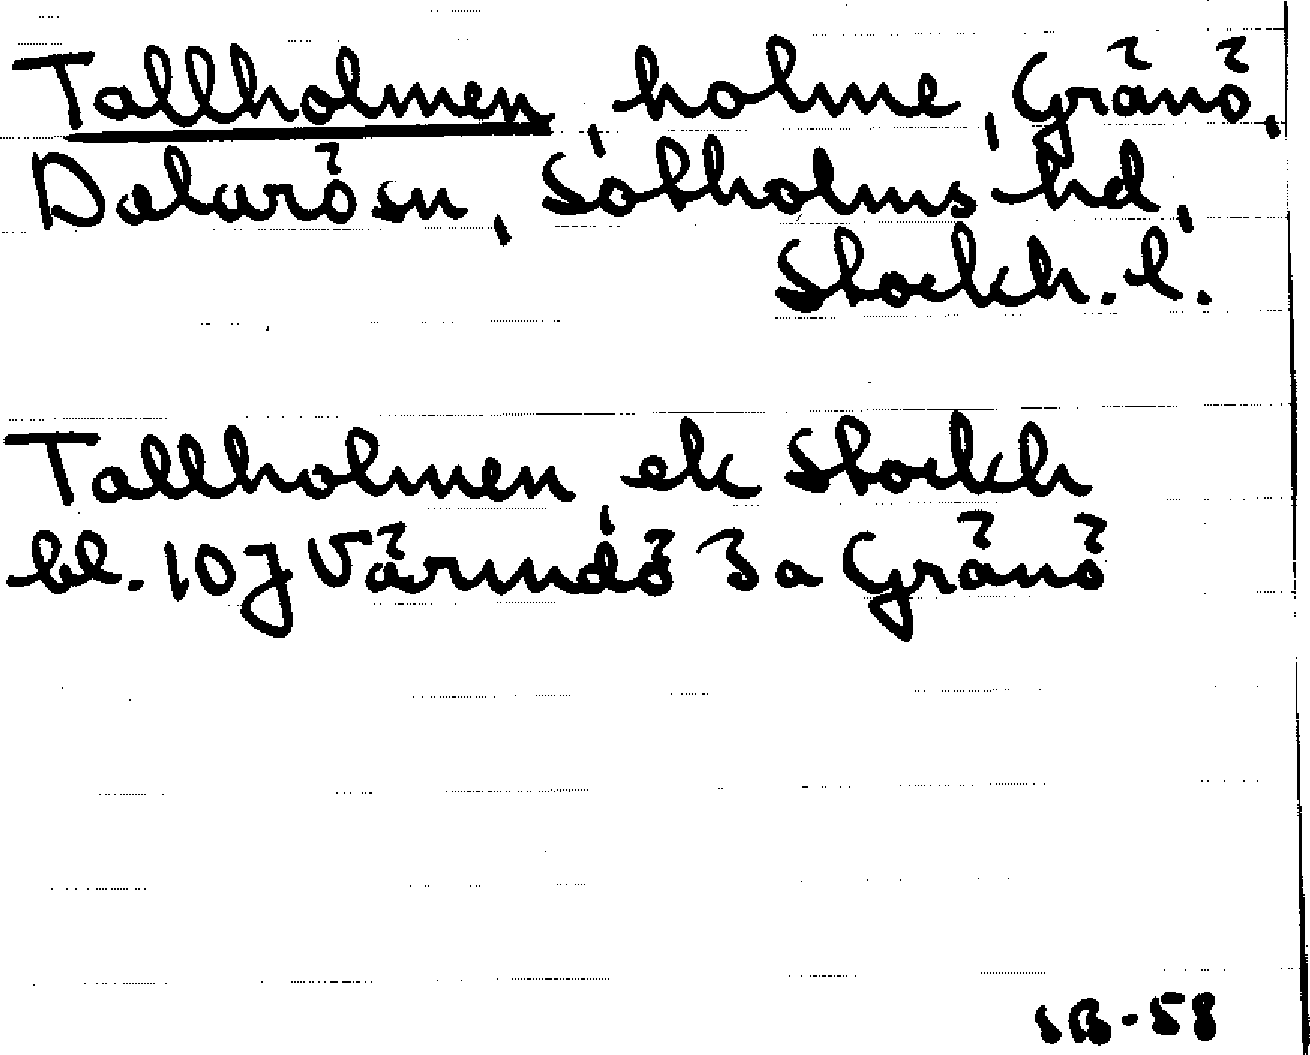 Tallholmen, holme, Gränö,
Dalarö sn, Sotholms hd,
Stockh. l.
Tallholmen, ek Stockh
bl. 10 J Värmdö 3a Gränö
SB-58